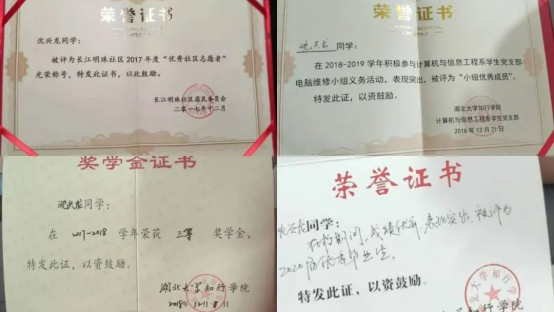 荣誉证书
沈兴龙同学：
被评为长江明珠社区2017年度“优秀社区志愿者”
光荣称号，特发此证书，以此鼓励。
长江明珠社区居民委员会
二零一七年十二月
荣誉证书
沈兴龙同学：
在2018-2019学年积极参与计算机与信息工程系学生党支部
电脑维修小组义务活动，表现突出，被评为“小组优秀成员”。
特发此证，以资鼓励。
湖北大学知行学院
计算机与信息工程系学生党支部
2018年12月21日
奖学金证书
沈兴龙同学：
在2017-2018学年荣获三等奖学金，
特发此证，以资鼓励。
湖北大学知行学院
2018年12月8日
荣誉证书
沈兴龙同学：
在校期间，成绩优异，表现突出，被评为
2020届优秀毕业生。
特发此证，以资鼓励。
大学知行学院